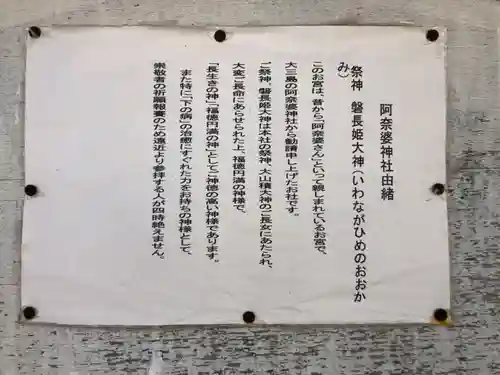 阿奈婆神社由緒
祭神　磐長姫大神（いわながひめのおおか
み）
このお宮は、昔から「阿奈婆さん」といって親しまれているお宮で、
大三島の阿奈婆神社から勧請申し上げたお社です。
ご祭神、磐長姫大神は本社の祭神、大山積大神のご長女にあたられ、
大変ご長命にあらせられた上、福徳円満の神様で、
「長生きの神」「福徳円満の神」としてご神徳の高い神様であります。
また特に「下の病」の治癒にすぐれた力をお持ちの神様として、
崇敬者の祈願報賽のため遠近より参拝する人が四時絶えません。